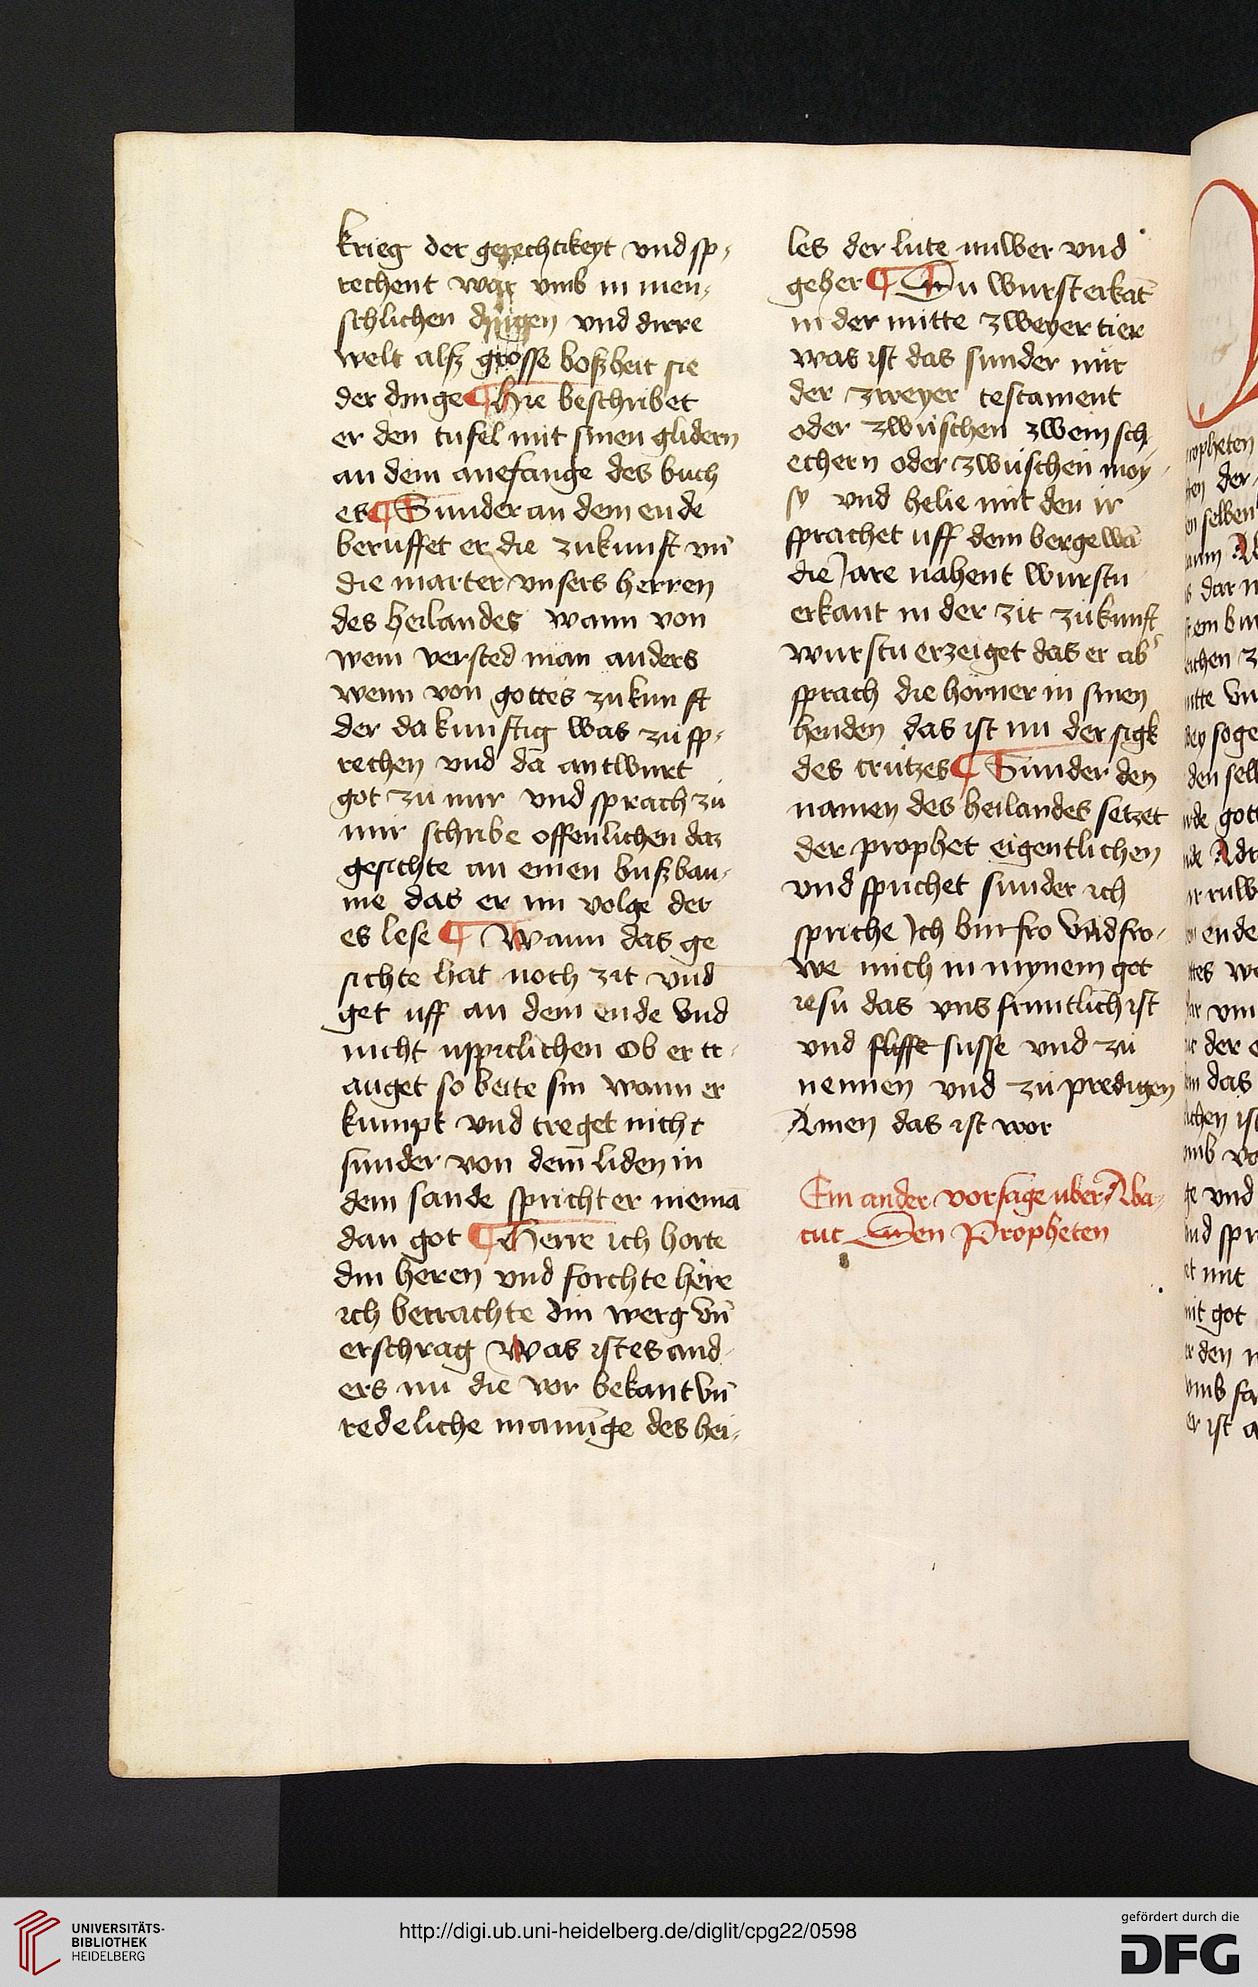 krieg der gerechtikeyt vnd sp-
rechent war vmb in men-
schlichen dingen vnd dirre
welt alsz grosse boszheit sie
der dinge ¶ Hie beschribet
er den tufel mit sinen glidern
an dem anefange des buch
es ¶ Sunder an dem ende
beruffet er die zukunft vn̄
die marter vnsers herren
des heilandes wann von
wem versted man anders
wenn von gottes zukunfft
der da kunftig was zu sp-
rechen vnd da antwurt
got zu mir vnd sprach zu
mir schribe offenlichen daz
gesichte an einen buszbau-
me das er im volge der
es lese ¶ Wann das ge
sichte hat noch zit vnd
get uff an dem ende vnd
nicht uppiclichen Ob er tr-
auget so beite sin wann er
kumpt vnd treget nicht
sunder von dem liden in
dem sande spricht er niemā
dan got ¶ Herre ich horte
din heren vnd forchte here
ich betrachte din werg vn̄
erschrag Was ist es and-
ers nu die vor bekant vn̄
redeliche manūge des hei-
les der lute nuwer vnd
geher ¶ Du wurst erkāt
in der mitte zweyer tier
was ist das sunder mit
der zweyer testament
oder zwuschen zwein sch
echern oder zwuschen moy-
sy vnd helie mit den ir
sprachet uff dem berge wā
die Jare nahent wurstu
erkant in der zit zukunft
wurstu erzeiget das er ab
sprach die horner in sinen
henden das ist nu der sigk
des crutzes ¶ Sunder den
namen des heilandes setzet
der prophet eigentlichen
vnd sprichet sunder ich
spriche Ich bin fro vnd fro-
we mich in mynem got
iesu das vns fruntlich ist
vnd susse vnd zu
nennen vnd zu predigen
Amen das ist wor
Ein ander vorsage uber Aba-
cuc Den Propheten
UNIVERSITÄTS-
BIBLIOTHEK
HEIDELBERG
http://digi.ub.uni-heidelberg.de/diglit/cpg22/0598
gefördert durch die
DFG